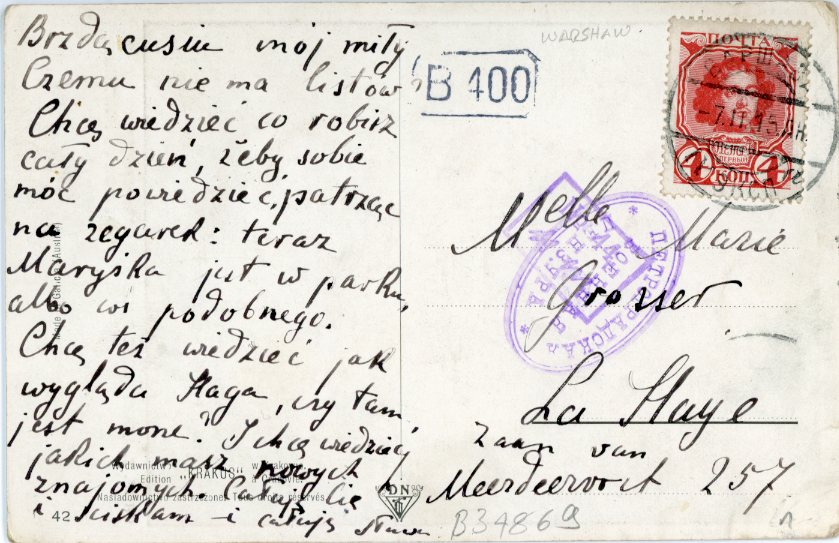 Brzdącusiu mój miły
Czemu nie ma listów?
Chcę wiedzieć co robisz
cały dzień, żeby sobie
móc powiedzieć, patrząc
na zegarek: teraz
Maryśka jest w parku,
albo coś podobnego.
Chcę też wiedzieć jak
wygląda Haga, czy tam
jest morze? I chcę wiedzieć
jakich masz nowych
znajomych. Całuję Cię
i ściskam – i całuję
WARSHAW.
B 400
ПОЧТА
4 КОП. 4
-7.II.15
ПЕТРОГРАДСКАЯ
ВОЕННАЯ
ЦЕНЗУРА
Melle Marie
Grosser
La Haye
Laan van
Meerdervoort 257
Wydawnictwo "KRAKUS" w Krakowie
Edition
Nadśladownictwo zastrzeżone. Tous droits réservés
42
DN
B34869